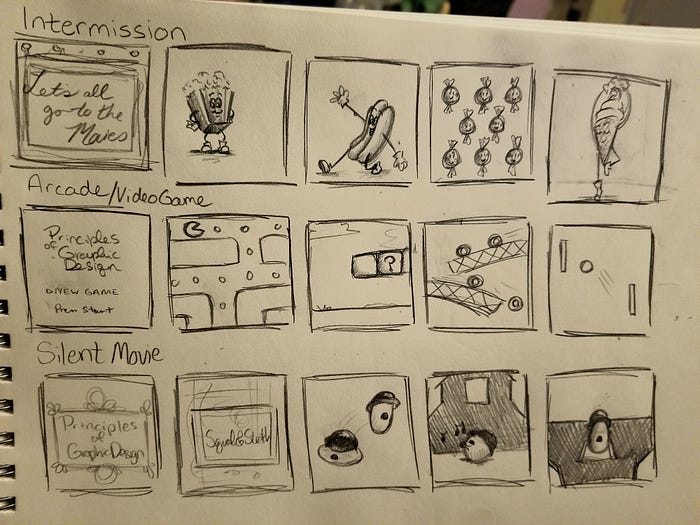 Intermission
Let's all
go to the
Movies
Arcade/Video Game
Principles
of Graphic
Design
▷NEW GAME
Press Start
?
Silent Movie
Principles
of
Graphic Design